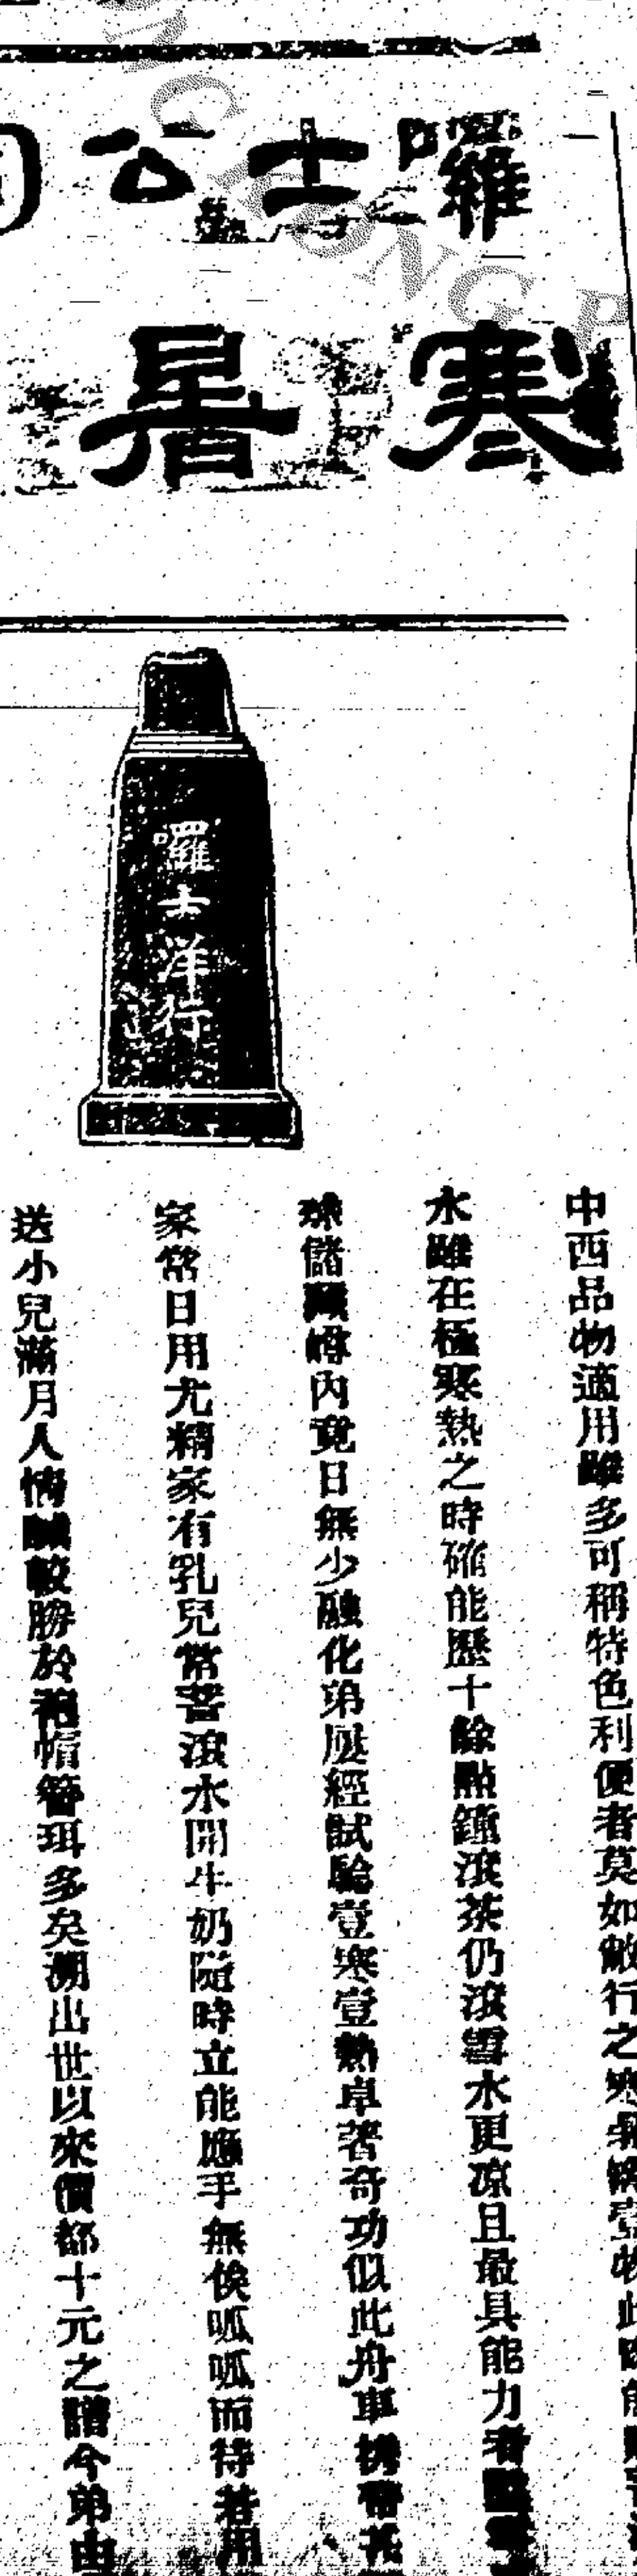 囉士公司
寒暑
囉士洋行
中西品物適用雖多可稱特色利便者莫如敝行之寒暑
水雖在極寒熱之時確能歷十餘點鐘滾茶仍滾雪水更凉且最具能力者
儲 內竟日無少融化弟屢經試驗壹寒壹熱卓著奇功似此舟車携帶
家常日用尤精家有乳兒常苦滾水開牛奶隨時立能應手無俟呱呱而待若用
送小兒滿月人情 較勝於 帽簪珥多矣溯出世以來價都十元之譜今弟由